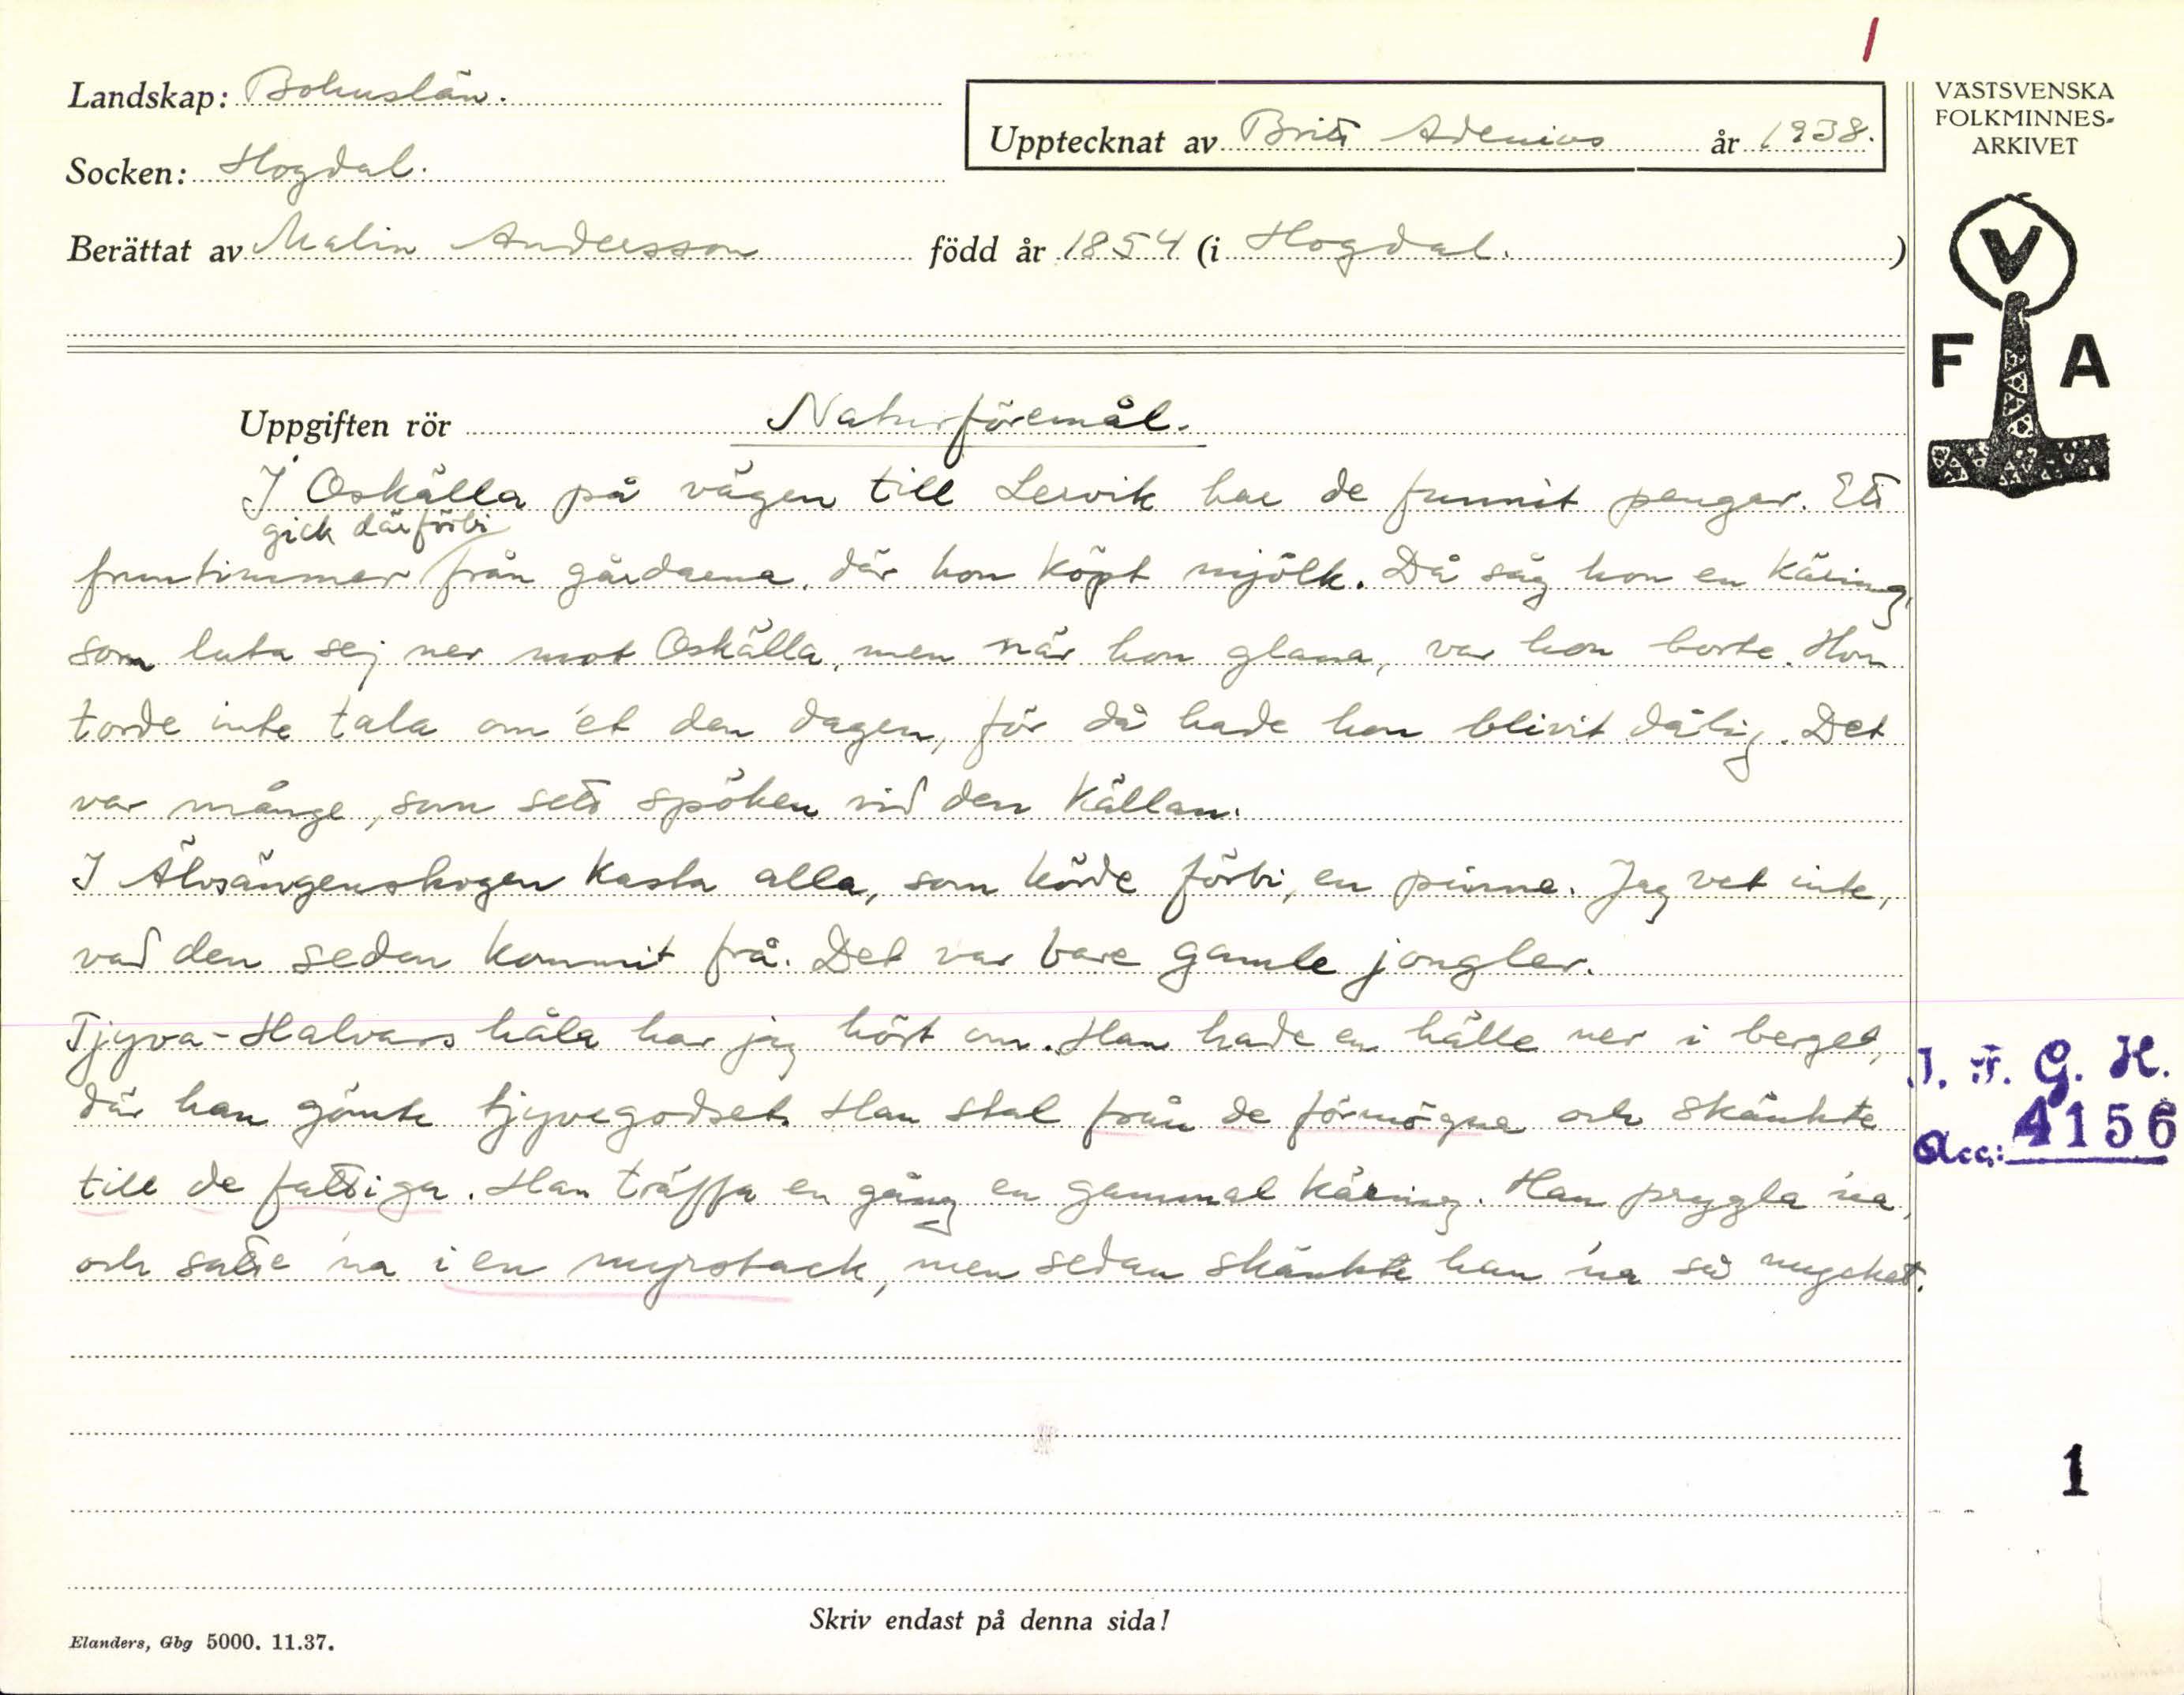 1
Landskap: Bohuslän.
Upptecknat av Britt Adenius år 1938.
Socken: Hogdal.
Berättat av Malin Andersson född år 1854 (i Hogdal. )
VÄSTSVENSKA
FOLKMINNES-
ARKIVET
V
F A
Uppgiften rör Naturföremål.
I Oskälla på vägen till Lervik har de funnit pengar. Ett
gick därförbi
fruntimmer från gårdarna, där hon köpt mjölk. Då såg hon en käring,
som luta sej ner mot Oskälla, men när hon glana, var hon borte. Hon
torde inte tala om 'et den dagen, för då hade hon blivit dålig. Det
var många, som sett spöken vid den källan.
I Älvsängenskogen kasta alla, som körde förbi, en pinne. Jag vet inte,
vad den seden kommit frå. Det var bare gamle jongler.
Tjyva-Halvars håla har jag hört om. Han hade en hålle ner i berget,
där han gömte tjyvegodset. Han stal från de förmögna och skänkte
till de fattiga. Han träffa en gång en gammal käring. Han prygla 'na,
och satte 'na i en myrstack, men sedan skänkte han 'na så mycket.
I. F. G. H.
Acc: 4156
1
Skriv endast på denna sida!
Elanders, Gbg 5000. 11.37.